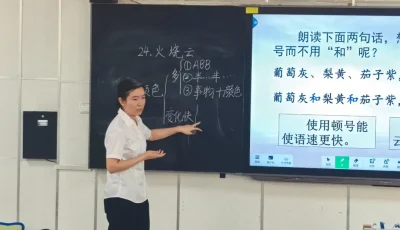 24.火烧云
①ABB
多②半 半
颜色
③事物+颜色
变化快
朗读下面两句话，想
号而不用“和”呢？
葡萄灰、梨黄、茄子紫，
葡萄灰和梨黄和茄子紫，
使用顿号能
使语速更快。